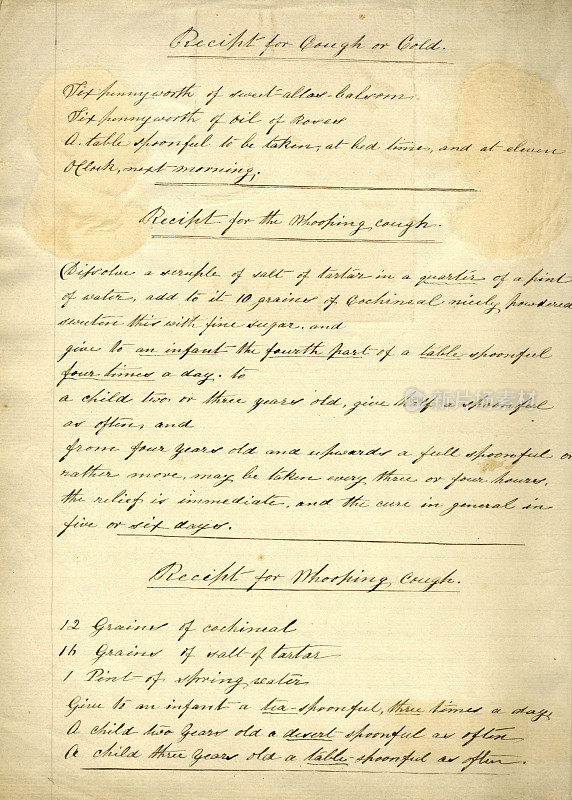 Recipt for Cough or Cold.
Six pennyworth of sweet-allas-balsom
Six pennyworth of Oil of Roses
A. table spoonful to be taken, at bed time, and at eleven
OClock, next morning.
Recipt for the Whooping cough.
Dissolve a scruple of salt of tartar in a quarter of a pint
of water, add to it 10 grains of Cochineal nicely powdered
sweeten this with fine sugar. and
give to an infant the fourth part of a table spoonful
four times a day. to
a child two or three years old, give half a spoonful
as often, and
from four years old and upwards a full spoonful or
rather more, may be taken every three or four hours,
the relief is immediate, and the cure in general in
five or six days.
Recipt for Whooping Cough.
12 Grains of cochineal
16 Grains of salt of tartar
1 Pint of spring water
Give to an infant a tea-spoonful, three times a day,
A child two years old a desert spoonful as often
A child three years old a table-spoonful as often.